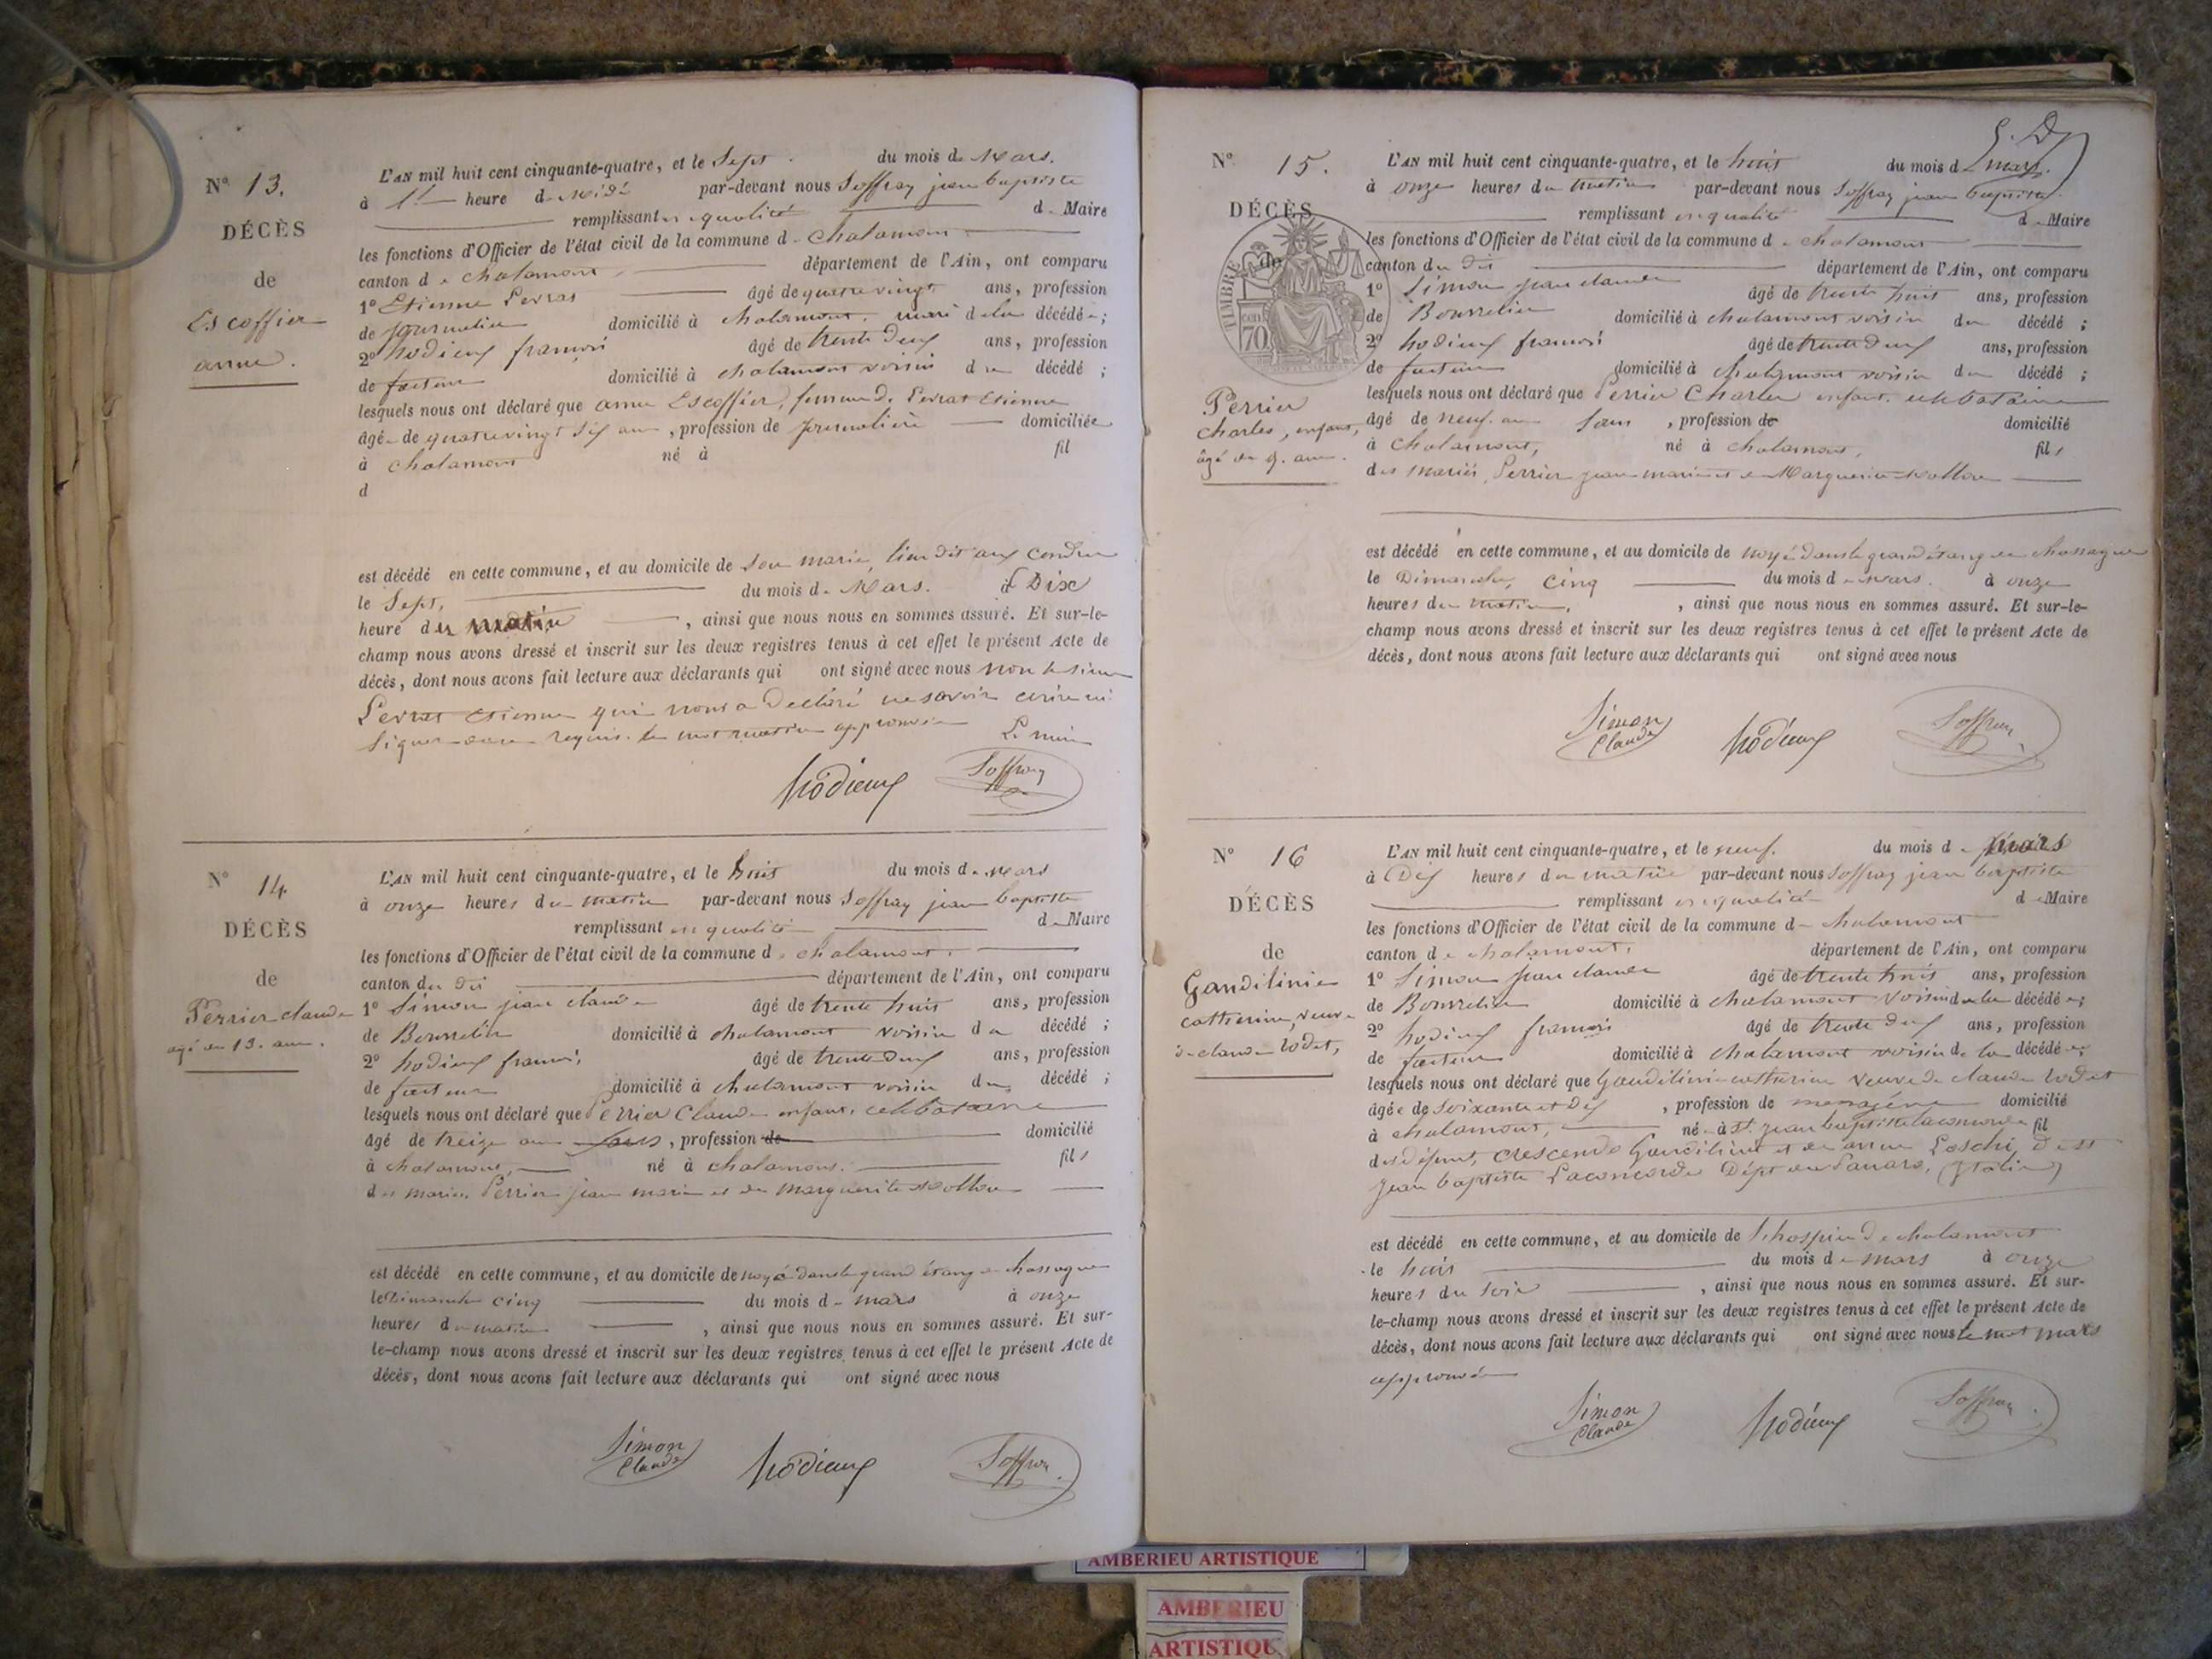 N° 13.
DÉCÈS
de
Escoffier
anne.
L'AN mil huit cent cinquante-quatre, et le Sept du mois de Mars.
à 1 heure de Midi par-devant nous Soffray jean baptiste
remplissant en qualité de Maire
les fonctions d'Officier de l'état civil de la commune de chalamont
canton de chalamont département de l'Ain, ont comparu
1° Etienne Perras âgé de quatrevingt ans, profession
de journalier domicilié à chalamont, mari de la décédée;
2° hodieux françois âgé de trente deux ans, profession
de facteur domicilié à chalamont voisin du décédé;
lesquels nous ont déclaré que anne Escoffier, femme de Perrat Etienne
âgée de quatrevingt dix ans, profession de journalière domiciliée
à chalamont né à fil
d
est décédé en cette commune, et au domicile de son marie, lieu dit aux
le Sept, du mois de Mars. à Dix
heure du matin, ainsi que nous nous en sommes assuré. Et sur-le-
champ nous avons dressé et inscrit sur les deux registres tenus à cet effet le présent Acte de
décès, dont nous avons fait lecture aux déclarants qui ont signé avec nous non le sieur
Perrat Etienne qui nous a déclaré ne savoir ecrire ni
signer de ce requis. le mot matin approuvé Le maire
hodieux Soffray
N° 14
DÉCÈS
de
Perrier claude
agé de 13. ans.
L'AN mil huit cent cinquante-quatre, et le huit du mois de Mars
à onze heures du matin par-devant nous Soffray jean baptiste
remplissant en qualité de Maire
les fonctions d'Officier de l'état civil de la commune de chalamont.
canton du dit département de l'Ain, ont comparu
1° Simon jean claude âgé de trente huit ans, profession
de Bourrelier domicilié à chalamont voisin du décédé;
2° hodieux françois âgé de trente deux ans, profession
de facteur domicilié à chalamont voisin du décédé;
lesquels nous ont déclaré que Perrier Claude enfant, celibataire
âgé de treize ans sans, profession de domicilié
à chalamont, né à chalamont. fils
des mariés Perrier jean marie et de marguerite
est décédé en cette commune, et au domicile de noyé dans le grand étang de chassagne
le Dimanche cinq du mois de mars à onze
heures du matin, ainsi que nous nous en sommes assuré. Et sur-
le-champ nous avons dressé et inscrit sur les deux registres tenus à cet effet le présent Acte de
décès, dont nous avons fait lecture aux déclarants qui ont signé avec nous
Simon
Claude hodieux Soffray
N° 15.
DÉCÈS
de
TIMBRE
cen
70
Perrier
Charles, enfant,
âgé de 9. ans.
L'AN mil huit cent cinquante-quatre, et le huit du mois de mars.
à onze heures du matin par-devant nous Soffray jean baptiste
remplissant en qualité de Maire
les fonctions d'Officier de l'état civil de la commune de chalamont
canton du dit département de l'Ain, ont comparu
1° Simon jean claude âgé de trente huit ans, profession
de Bourrelier domicilié à chalamont voisin du décédé;
2° hodieux françois âgé de trente deux ans, profession
de facteur domicilié à chalamont voisin du décédé;
lesquels nous ont déclaré que Perrier Charles enfant. celibataire
âgé de neuf. ans sans, profession de domicilié
à Chalamont, né à chalamont, fils
des mariés, Perrier jean marie et de Marguerite
est décédé en cette commune, et au domicile de noyé dans le grand étang de chassagne
le Dimanche, cinq du mois de Mars. à onze
heures du matin, ainsi que nous nous en sommes assuré. Et sur-le-
champ nous avons dressé et inscrit sur les deux registres tenus à cet effet le présent Acte de
décès, dont nous avons fait lecture aux déclarants qui ont signé avec nous
Simon
Claude hodieux Soffray
N° 16
DÉCÈS
de
Gandilinie
catherine, veuve
de claude Rodet,
L'AN mil huit cent cinquante-quatre, et le neuf. du mois de mars
à Dix heures du matin par-devant nous Soffray jean baptiste
remplissant en qualité de Maire
les fonctions d'Officier de l'état civil de la commune de chalamont
canton de chalamont, département de l'Ain, ont comparu
1° Simon jean claude âgé de trente huit ans, profession
de Bourrelier domicilié à chalamont voisin de la décédée;
2° hodieux françois âgé de trente deux ans, profession
de facteur domicilié à chalamont voisin de la décédée;
lesquels nous ont déclaré que Gandilinie catherine veuve de claude Rodet
âgée de soixante et dix, profession de menagère domicilié
à chalamont, née à St. jean baptiste fil
des défunts, Crescendo et de anne Loschi, de St
jean baptiste Dépt du Panaro, (Italie)
est décédé en cette commune, et au domicile de l'hospice de chalamont
le huit du mois de mars à onze
heures du soir, ainsi que nous nous en sommes assuré. Et sur-
le-champ nous avons dressé et inscrit sur les deux registres tenus à cet effet le présent Acte de
décès, dont nous avons fait lecture aux déclarants qui ont signé avec nous le mot mars
approuvé
Simon
Claude hodieux Soffray
AMBERIEU ARTISTIQUE
AMBERIEU
ARTISTIQUE